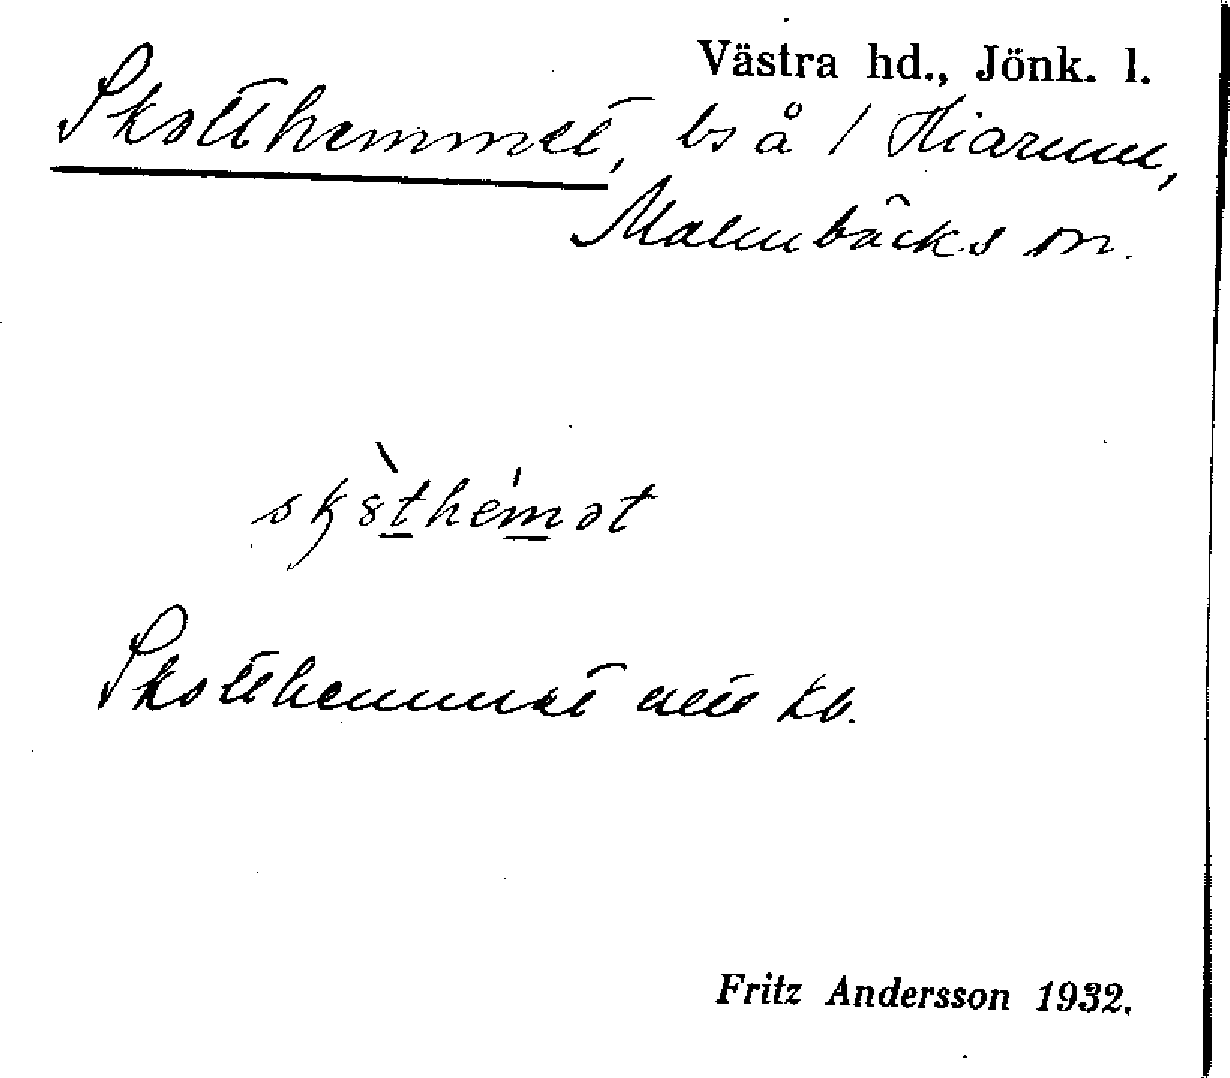 Västra hd., Jönk. l.
Skotthemmet, bs å 1 Hiarum,
Malmbäcks sn.
Skotthemmet enl. kb.
Fritz Andersson 1932.